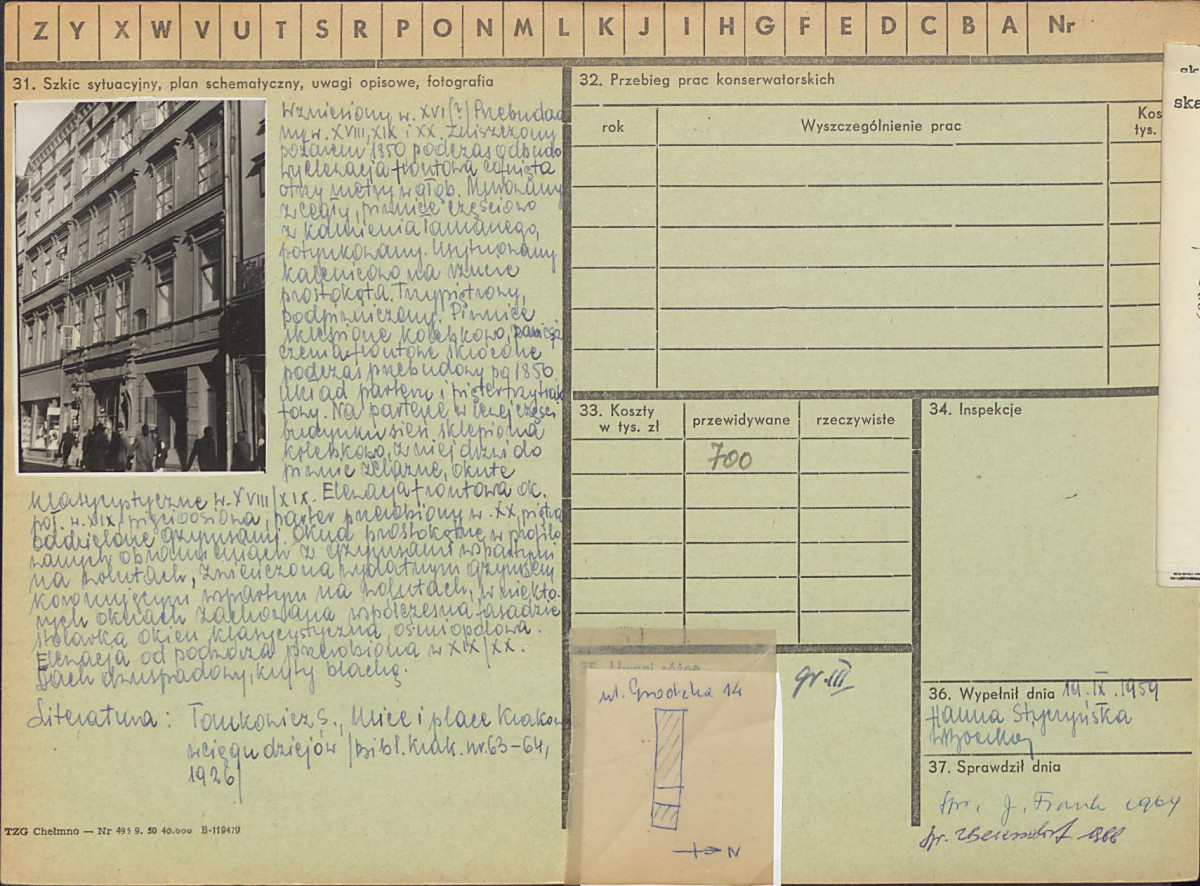 Z Y X W V U T S R P O N M L K J I H G F E D C B A Nr
31. Szkic sytuacyjny, plan schematyczny, uwagi opisowe, fotografia
Wzniesiony w. XVI(?) Przebudowa
ny w. XVIII, XIX i XX. Zniszczony
pożarem 1850 podczas odbudo
wy elewacja frontowa cofnięta
o trzy metry w głąb. Murowany
z cegły, piwnice częściowo
z kamienia łamanego,
potynkowany. Usytuowany
kalenicowo na rzucie
prostokąta. Trzypiętrowy,
podpiwniczony. Piwnice
sklepione kolebkowo, pomiesz
czenia frontowe skrócone
podczas przebudowy po 1850.
Układ parteru i pięter trzytrak
towy. Na parterze w lewej części
budynku sień sklepiona
kolebkowo, z niej drzwi do
piwnic żelazne, okute
klasycystyczne w. XVIII/XIX. Elewacja frontowa ok.
poł. w. XIX, pięcioosiowa, parter przerobiony w. XX, piętra
oddzielone gzymsami. Okna prostokątne w profilo
wanych obramieniach z gzymsami wspartymi
na wolutach, zwieńczona wydatnym gzymsem
koronującym wspartym na wolutach, w niektó-
rych oknach zachowana współczesna fasadzie
stolarka okien klasycystyczna, ośmiopolowa.
Elewacja od podwórza przerobiona w XIX/XX.
Dach dwuspadowy, kryty blachą.
Literatura: Tomkowicz S., Ulice i place Krakowa
w ciągu dziejów /Bibl. Krak. nr. 63-64,
1926/
TZG Chełmno — Nr 495 9. 59 40.000 B-119479
32. Przebieg prac konserwatorskich
rok Wyszczególnienie prac Kos
tys.
33. Koszty
w tys. zł
przewidywane rzeczywiste
700
34. Inspekcje
35. Uwagi różne
ul. Grodzka 14
N
gr. III
36. Wypełnił dnia 19.IX.1959
Hanna Styczyńska
37. Sprawdził dnia
Spr. J. Frank 1964
Spr. 1966
ska